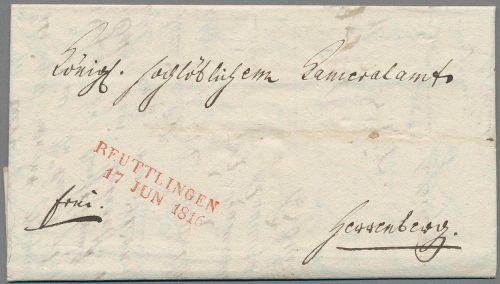 Königl. hochlöblichem Kameralamt
REUTTLINGEN
17 JUN 1816
frei.
Herrenberg.